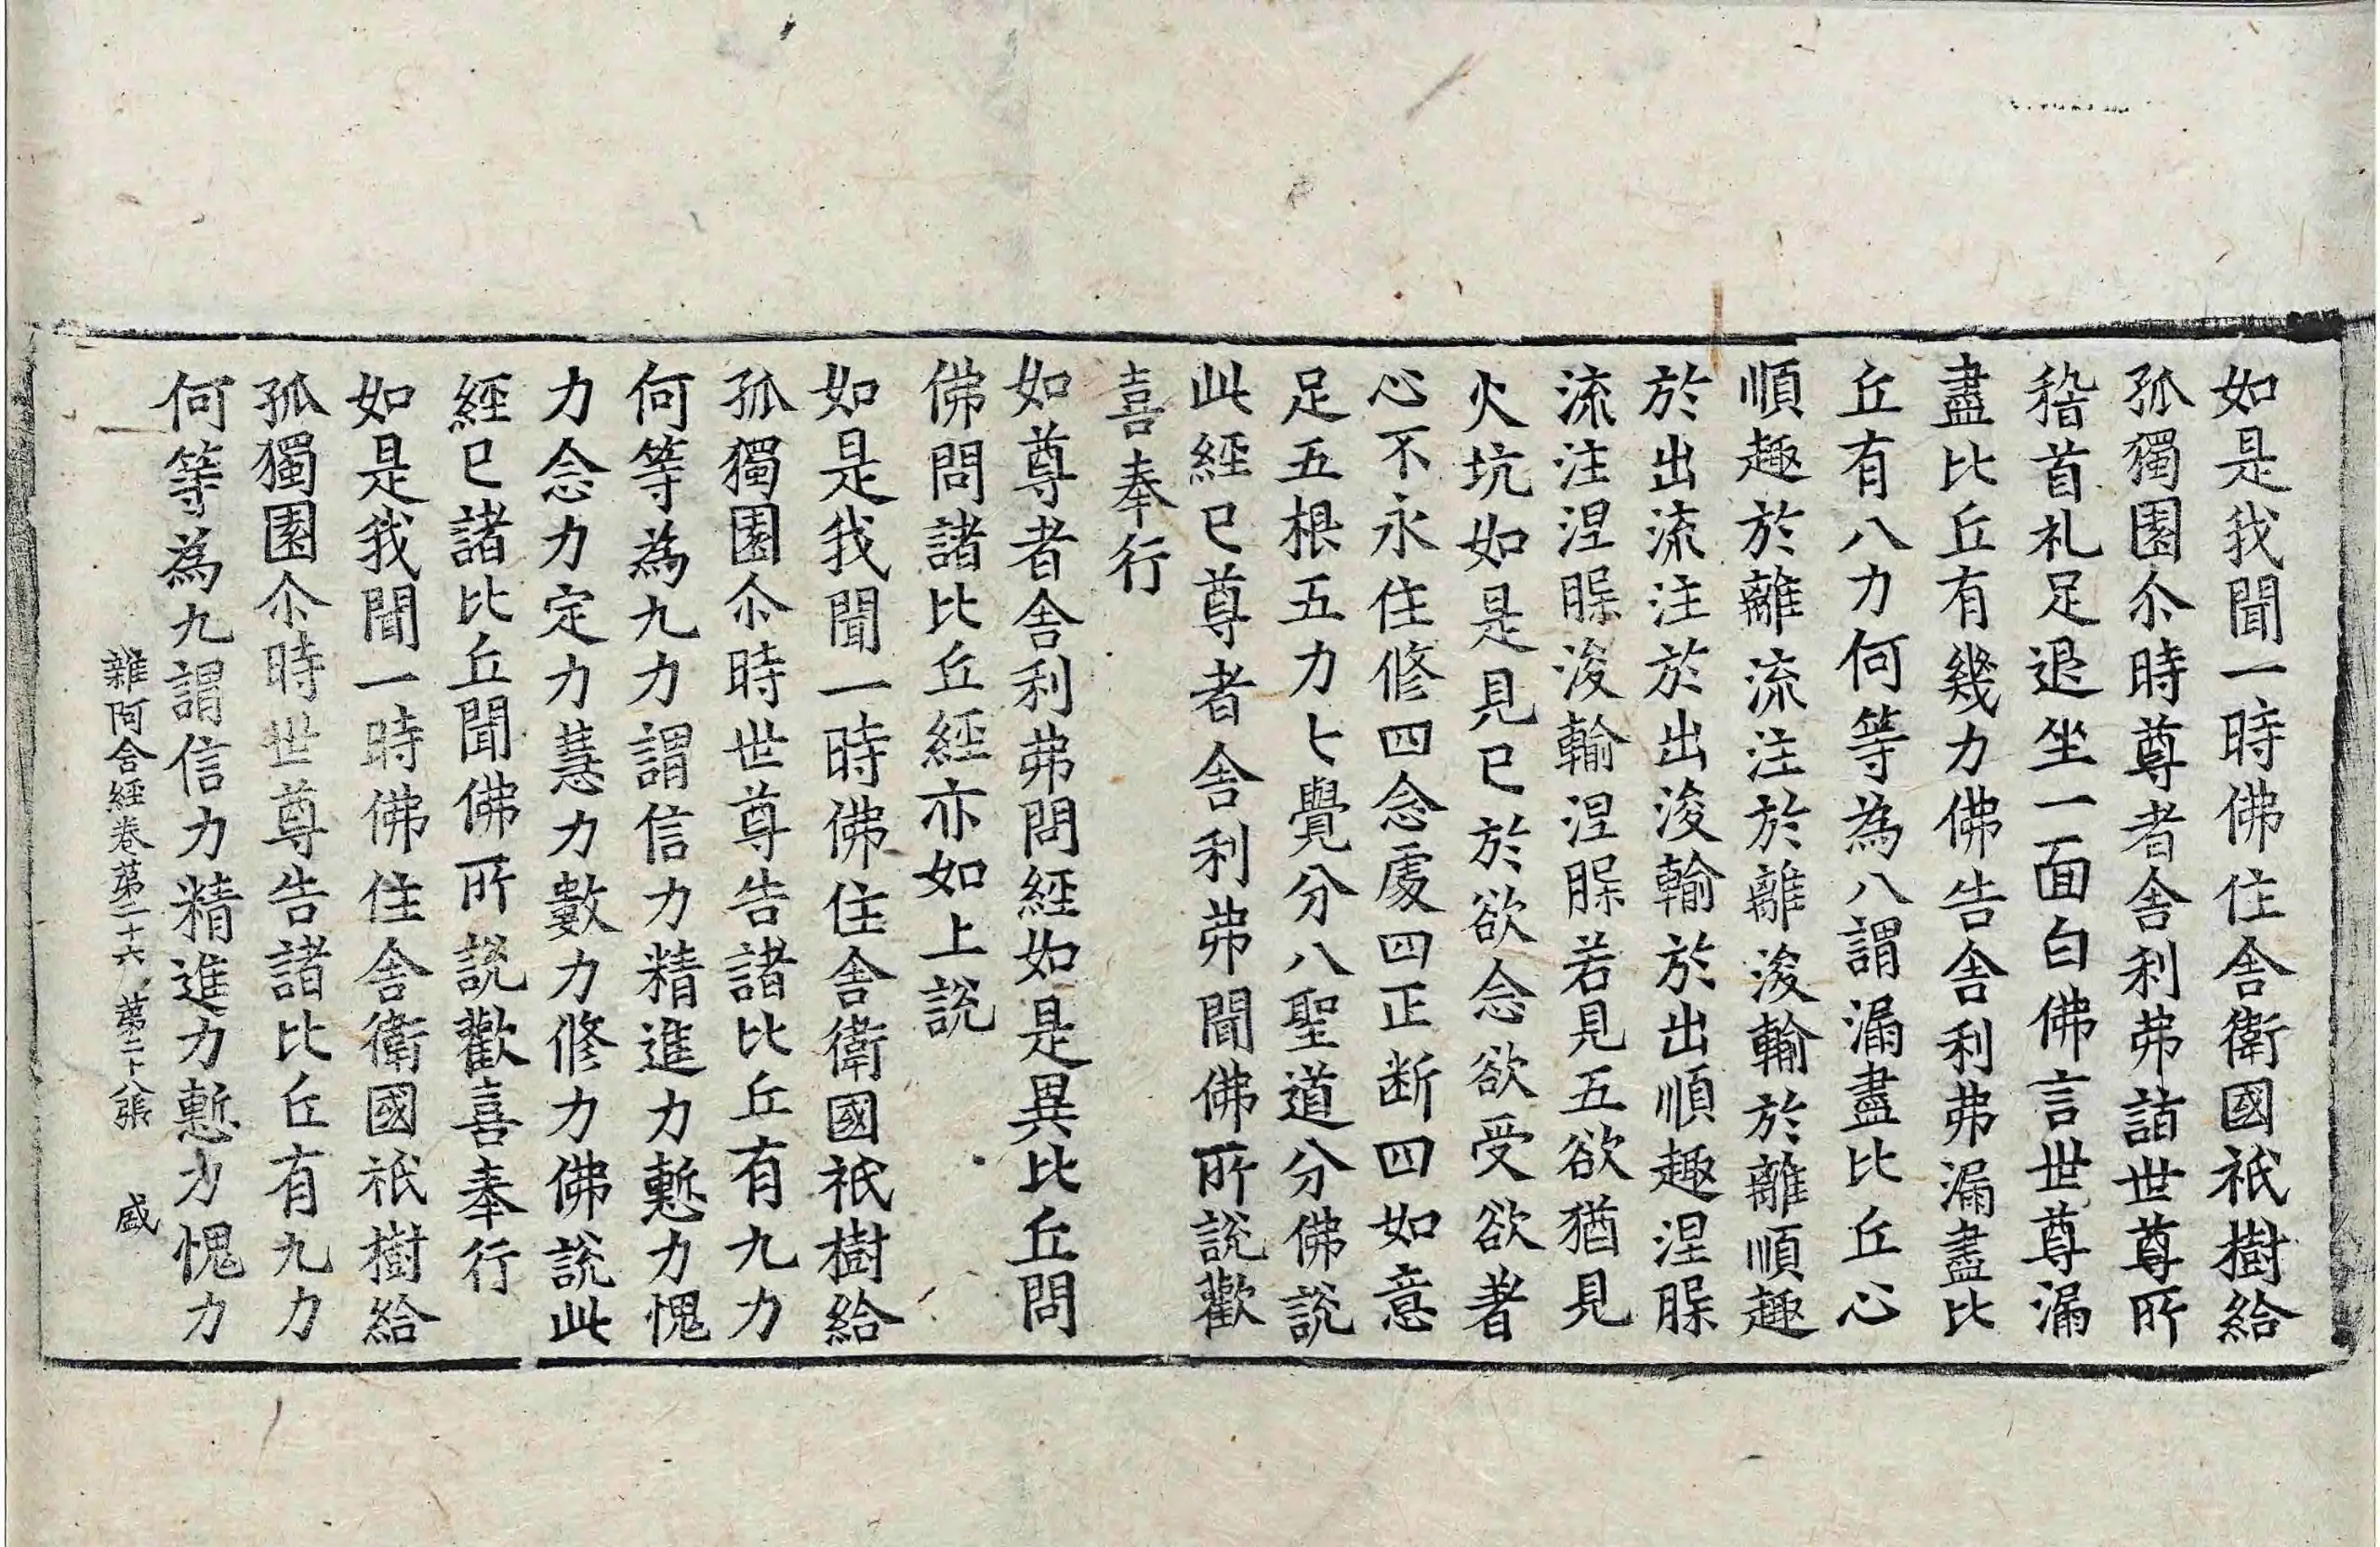 如是我聞一時佛住舍衛國祇樹給
孤獨園尒時尊者舍利弗詣世尊所
稽首礼足退坐一面白佛言世尊漏
盡比丘有幾力佛告舍利弗漏盡比
丘有八力何等為八謂漏盡比丘心
順趣於離流注於離浚輸於離順趣
於出流注於出浚輸於出順趣涅槃
流注涅槃浚輸涅槃若見五欲猶見
火坑如是見已於欲念欲受欲著
心不永住修四念處四正断四如意
足五根五力七覺分八聖道分佛說
此經已尊者舍利弗聞佛所說歡
喜奉行
如尊者舍利弗問經如是異比丘問
佛問諸比丘經亦如上說
如是我聞一時佛住舍衛國祇樹給
孤獨園尒時世尊告諸比丘有九力
何等為九力謂信力精進力慙力愧
力念力定力慧力數力修力佛說此
經已諸比丘聞佛所說歡喜奉行
如是我聞一時佛住舍衛國祇樹給
孤獨園尒時世尊告諸比丘有九力
何等為九謂信力精進力慙力愧力
雜阿含經卷苐二十六 苐二十八張 盛